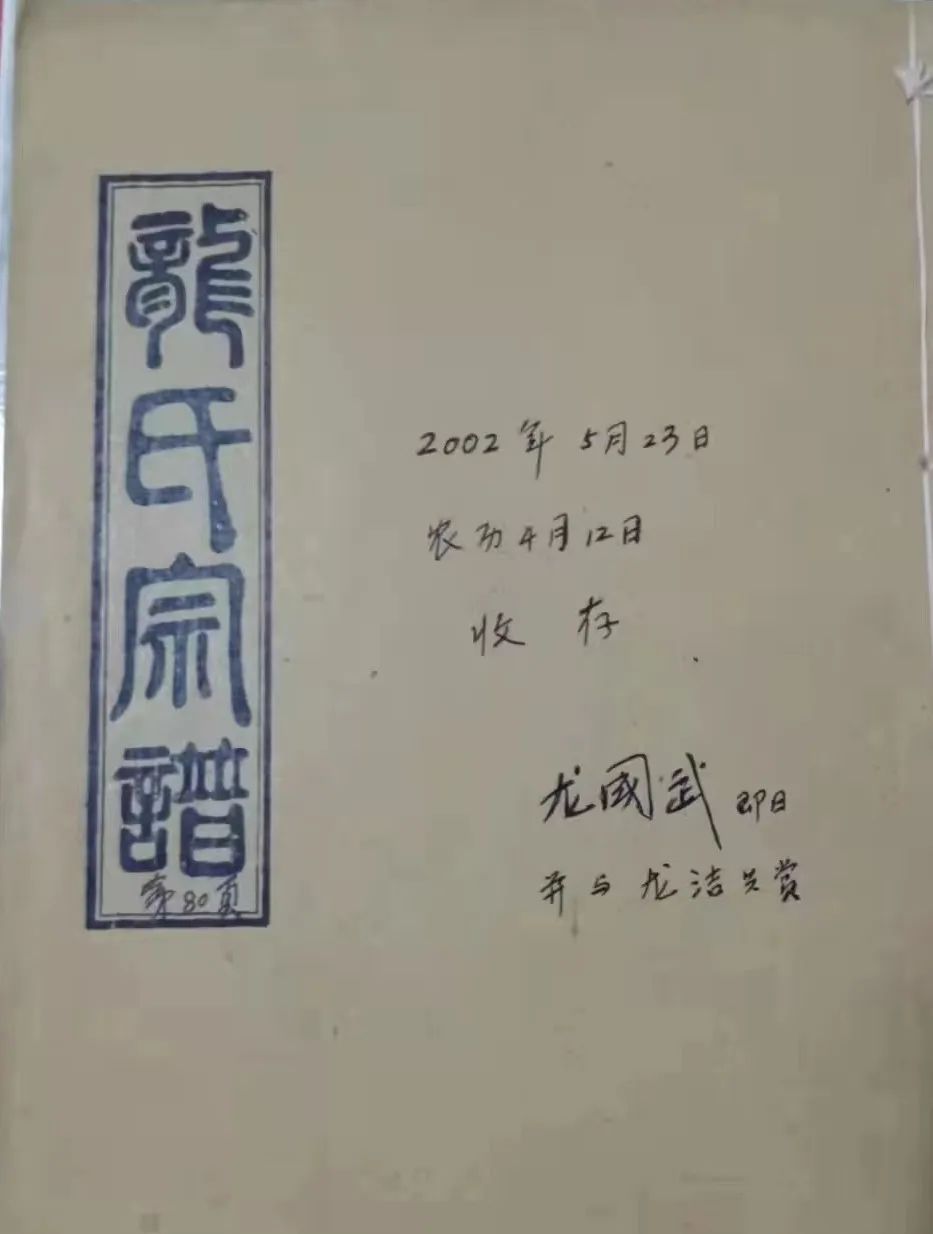 龍氏宗譜
第80页
2002年5月23日
农历4月12日
收存
龙國武 即日
并与龙洁共赏